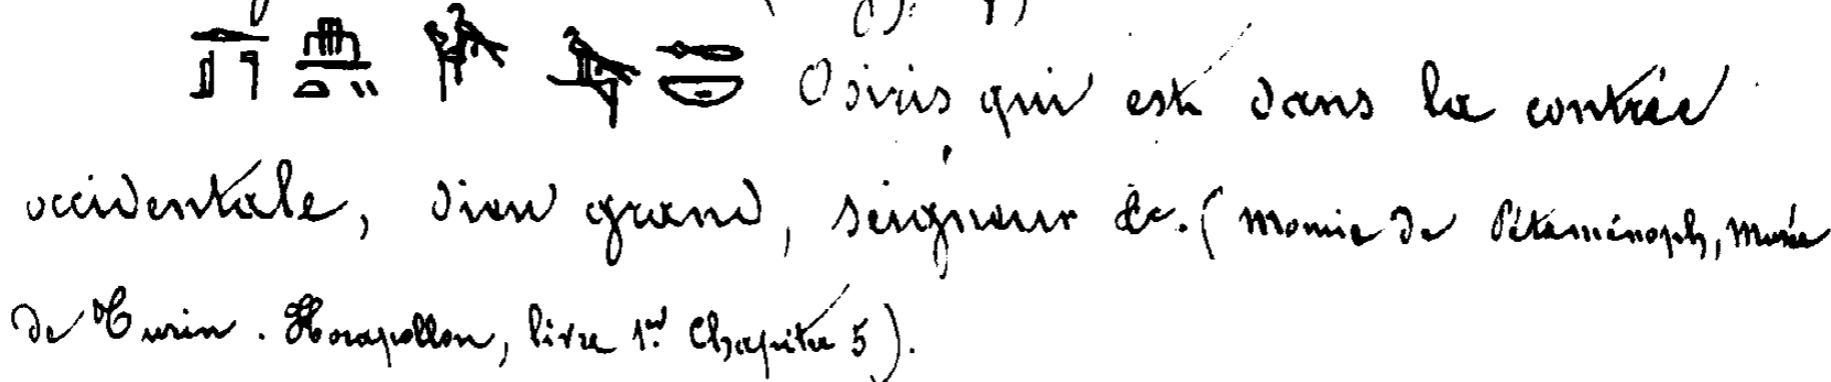 Osiris qui est dans la contrée
occidentale, dieu grand, seigneur &c. (momie de Pétaménoph, Musée
de Turin. Horapollon, livre 1er. Chapitre 5).